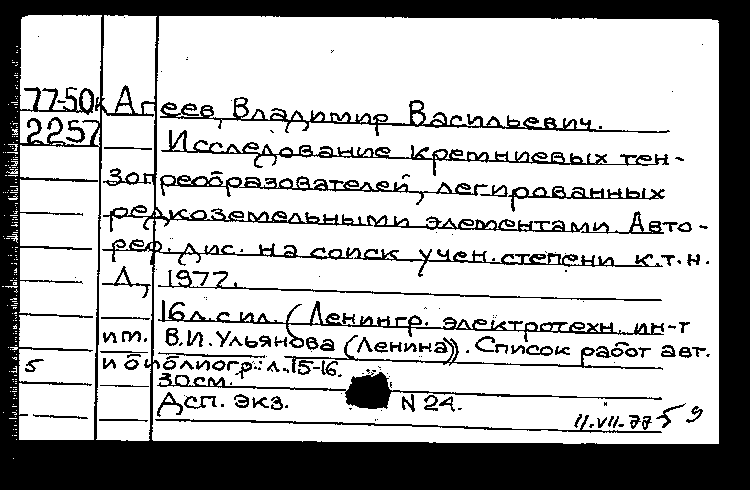 77-50к Агеев, Владимир Васильевич.
2257 Исследование кремниевых тен-
зопреобразователей, легированных
редкоземельными элементами. Авто-
реф. дис. на соиск учен. степени к.т.н.
Л., 1977.
16 л. с ил. (Ленингр. электротехн. ин-т
им. В.И. Ульянова (Ленина)). Список работ авт.
5 и библиогр.: л. 15-16.
30 см.
Дсп. экз. N 24.
11.VII.77 59